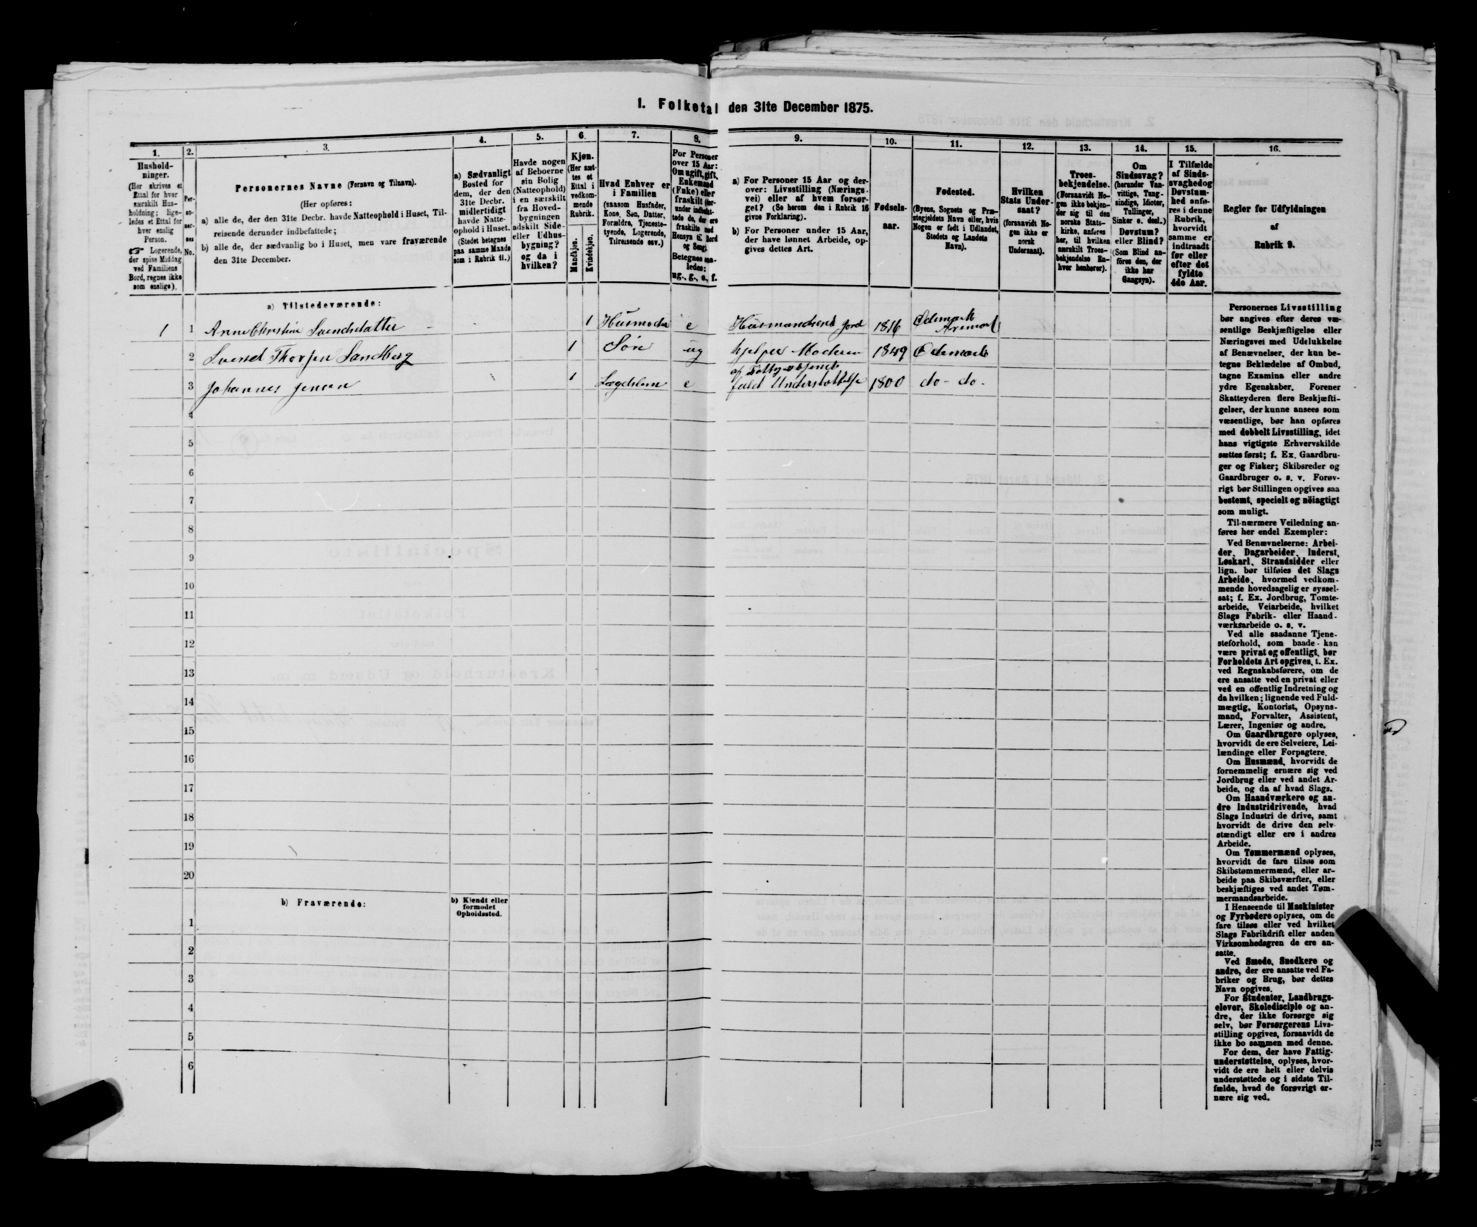 1. Folketal den 31te December 1875.
1. 2. 3. 4. 5. 6. 7. 8. 9. 10. 11. 12. 13. 14. 15. 16.
Hushold-
ninger.
(Her skrives et
Ettal for hver
særskilt Hus-
holdning; lige-
ledes et Ettal for
hver enslig
Person.
☞ Logerende,
der spise Middag
ved Familiens
Bord, regnes ikke
som enslige).
Per-
so-
ner-
nes
No.
Personernes Navne (Fornavn og Tilnavn).
(Her opføres:
a) alle de, der den 31te Decbr. havde Natteophold i Huset, Til-
reisende derunder indbefattede;
b) alle de, der sædvanlig bo i Huset, men vare fraværende
den 31te December.
a) Sædvanligt
Bosted for
dem, der den
31te Decbr.
midlertidigt
havde Natte-
ophold i Huset.
(Stedet betegnes
paa samme Maade
som i Rubrik 11.)
Havde nogen
af Beboerne
sin Bolig
(Natteophold)
i en særskilt
fra Hoved-
bygningen
adskilt Side-
eller Udhus-
bygning?
og da i
hvilken?
Kjøn.
(Her sæt-
tes et
Ettal i
vedkom-
mende
Rubrik.
Mandkjøn.
Kvindekjøn.
Hvad Enhver er
i Familien
(saasom Husfader,
Kone, Søn, Datter,
Forældre, Tjeneste-
tyende, Logerende,
Tilreisende osv.)
For Personer
over 15 Aar:
Om ugift, gift,
Enkemand
(Enke) eller
fraskilt
Hensyn til Bord
og Seng).
Betegnes saa-
ledes:
ug., g., e., f.
a) For Personer 15 Aar og der-
over: Livsstilling (Nærings-
vei) eller af hvem forsør-
get? (Se herom den i Rubrik 16
givne Forklaring).
b) For Personer under 15 Aar,
der have lønnet Arbeide, op-
gives dettes Art.
Fødsels-
aar.
Fødested.
(Byens, Sognets og Præ-
stegjeldets Navn eller, hvis
Nogen er født i Udlandet,
Stedets og Landets
Navn).
Hvilken
Stats Under-
saat?
(forsaavidt No-
gen ikke er
norsk
Undersaat).
Troes-
bekjendelse.
(Forsaavidt No-
gen ikke bekjen-
der sig til den
norske Stats-
kirke, anføres
her, til hvilken
særskilt Troes-
bekjendelse En-
hver henhører).
Om
Sindssvag?
(herunder Van-
vittige, Tung-
sindige, Idioter,
Tullinger,
Sinker o. desl.)
Døvstum?
eller Blind?
(Som Blind an-
føres den, der
ikke har
Gangsyn).
I Tilfælde
af Sinds-
svaghed og
Døvstum-
hed anfø-
res i denne
Rubrik,
hvorvidt
samme er
indtraadt
før eller
efter det
fyldte
4de Aar.
Regler for Udfyldningen
af
Rubrik 9.
a) Tilstedeværende:
1 1 Anne Christine Svendsdatter 1 Husmoder e Husmandsend Jord 1816 Ødemark
2 Svend Thorsen Sandberg 1 Søn ug hjelper Moderen 1849 Ødemark
3 Johannes Jensen 1 Lægdslem e af Fattigvæsenet
fuld Understøttelse 1800 do - do -
4
5
6
7
8
9
10
11
12
13
14
15
16
17
18
19
20
b) Fraværende:
b) Kjendt eller
formodet
Opholdssted.
1
2
3
4
5
6
Personernes Livsstilling
bør angives efter deres væ-
sentlige Beskjæftigelse eller
Næringsvei med Udelukkelse
af Benævnelser, der kun be-
tegne Beklædelse af Ombud,
tagne Examina eller andre
ydre Egenskaber. Forener
Skatteyderen flere Beskjæfti-
gelser, der kunne ansees som
væsentlige, bør han opføres
med dobbelt Livsstilling, idet
hans vigtigste Erhvervskilde
sættes først; f. Ex. Gaardbru-
ger og Fisker; Skibsreder og
Gaardbruger o. s. v. Forøv-
rigt bør Stillingen opgives saa
bestemt, specielt og nøiagtigt
som muligt.
Til nærmere Veiledning an-
føres her endel Exempler:
Ved Benævnelserne: Arbei-
der, Dagarbeider, Inderst,
Løskarl, Strandsidder eller
lign. bør tilføies det Slags
Arbeide, hvormed vedkom-
mende hovedsagelig er syssel-
sat; f. Ex. Jordbrug, Tomte-
arbeide, Veiarbeide, hvilket
Slags Fabrik- eller Haand-
værksarbeide o. s. v.
Ved alle saadanne Tjene-
steforhold, som baade kan
være privat og offentligt, bør
Forholdets Art opgives, t. Ex.
ved Regnskabsførere, om de
ere ansatte ved en privat eller
ved en offentlig Indretning og
da hvilken; lignende ved Fuld-
mægtig, Kontorist, Opsyns-
mand, Forvalter, Assistent,
Lærer, Ingeniør og andre.
Om Gaardbrugere oplyses,
hvorvidt de ere Selveiere, Lei-
lændinge eller Forpagtere.
Om Husmænd, hvorvidt de
fornemmelig ernære sig ved
Jordbrug eller ved andet Ar-
beide, og da af hvad Slags.
Om Haandværkere og an-
dre Industridrivende, hvad
Slags Industri de drive, samt
hvorvidt de drive den selv-
stændigt eller ere i andres
Arbeide.
Om Tømmermænd oplyses,
hvorvidt de fare tilsøs som
Skibstømmermænd, eller ar-
beide paa Skibsværfter, eller
beskjæftiges ved andet Tøm-
mermandsarbeide.
I Henseende til Maskinister
og Fyrbødere oplyses, om de
fare tilsøs eller ved hvilket
Slags Fabrikdrift eller anden
Virksomhedsgren de ere an-
satte.
Ved Smede, Snedkere og
andre, der ere ansatte ved Fa-
briker og Brug, bør dettes
Navn opgives.
For Studenter, Landbrugs-
elever, Skoledisciple og an-
dre, der ikke forsørge sig
selv, bør Forsørgerens Livs-
stilling opgives, forsaavidt de
ikke bo sammen med denne.
For dem, der have Fattig-
understøttelse, oplyses, hvor-
vidt de ere helt eller delvis
understøttede og i sidste Til-
fælde, hvad de forøvrigt er-
nære sig ved.